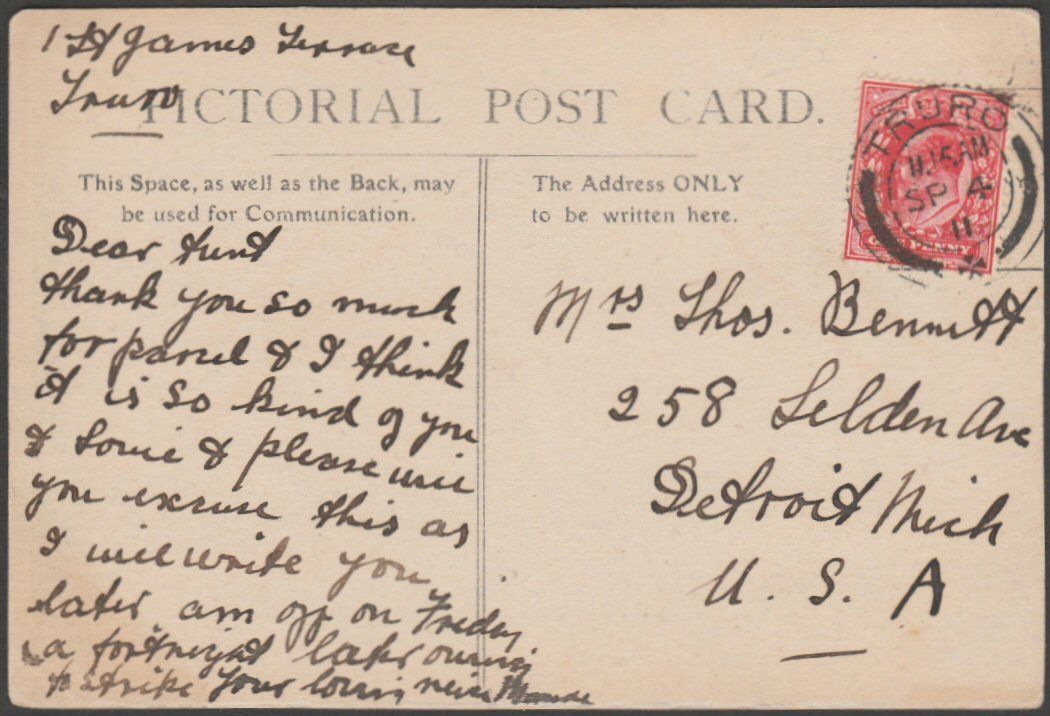 1 St James Terrace
Truro
PICTORIAL POST CARD.
This Space, as well as the Back, may
be used for Communication.
Dear Aunt
thank you so much
for parcel & I think
it is so kind of you
& & please will
you excuse this as
I will write you
later am off on Friday
a fortnight later owing
to strike your loving niece
The Address ONLY
to be written here.
TRURO
11.15 AM
SP 4
11
PENNY
Mrs Thos. Bennett
258 Selden Ave
Detroit Mich
U. S. A